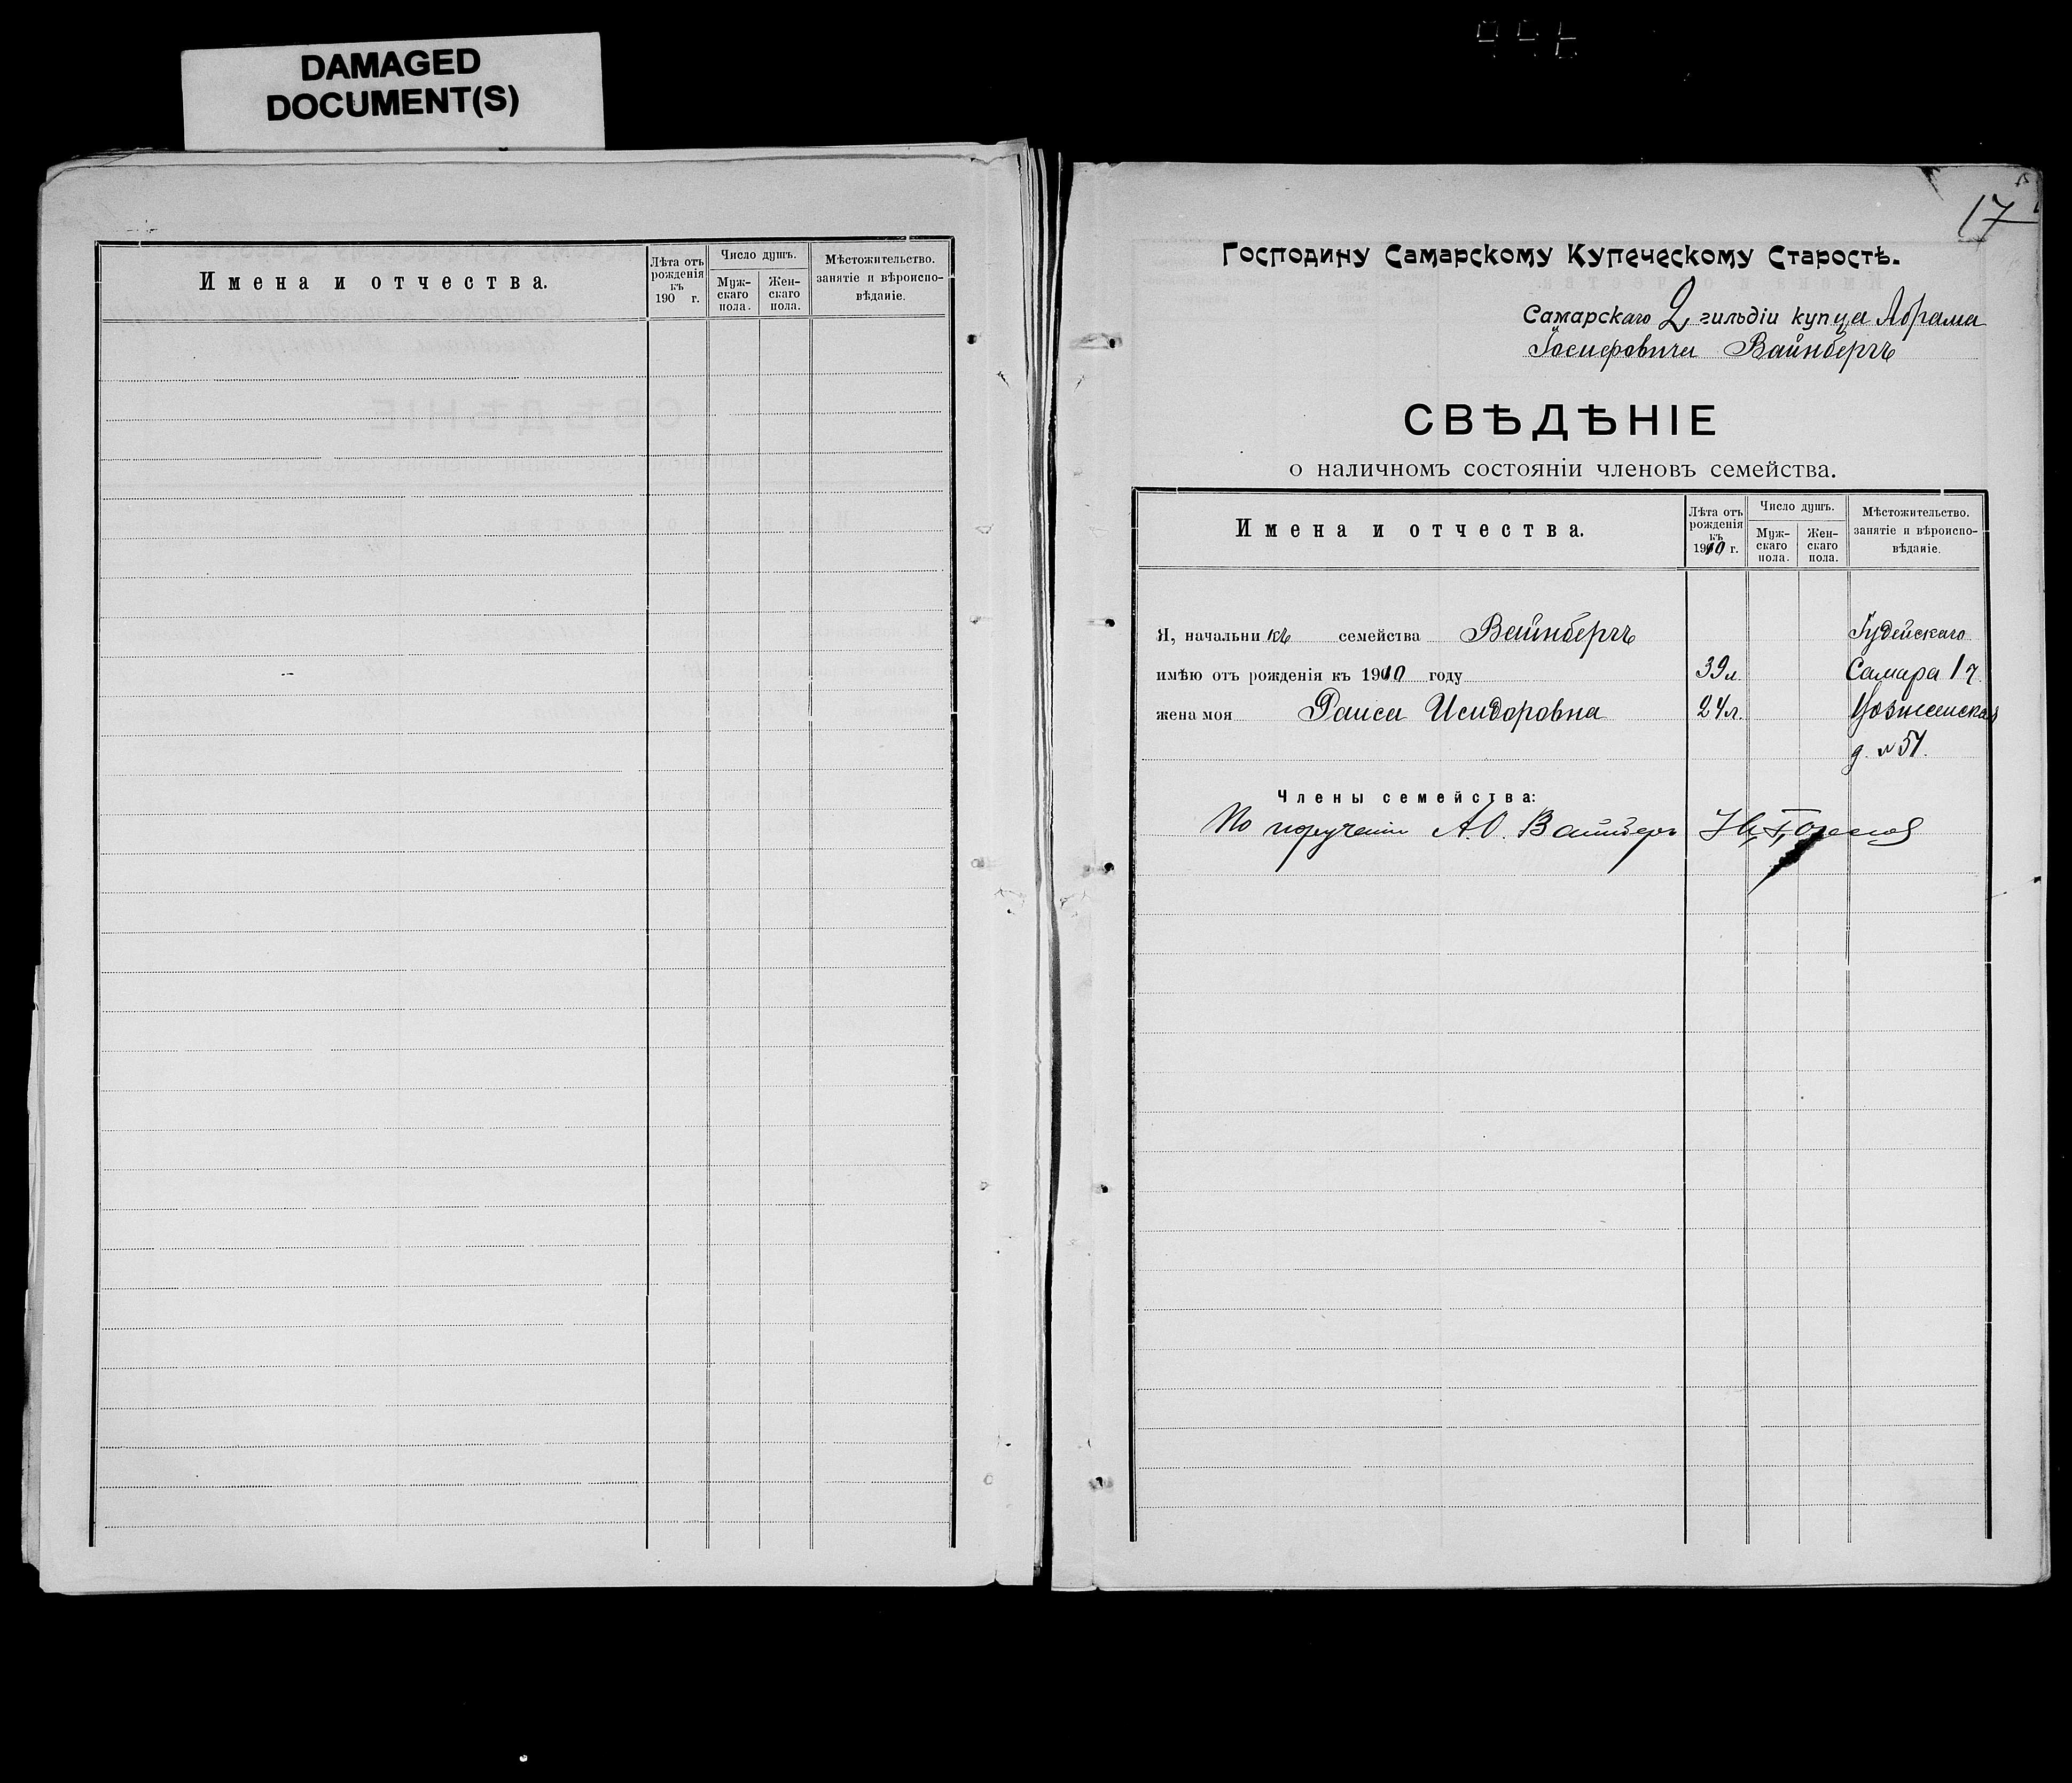 DAMAGED
DOCUMENT(S)
Имена и отчества.
Лѣта отъ рожденія къ 190 г.
Число душъ.
Муж-скаго пола.
Жен-скаго пола.
Мѣстожительство. занятіе и вѣроиспо-вѣданіе.
17
Господину Самарскому Купеческому Старостѣ.
Самарскаго 2 гильдіи купца Абрама
Іосифовича Вайнбергъ
СВѢДѢНІЕ
о наличномъ состояніи членовъ семейства.
Имена и отчества.
Лѣта отъ рожденія къ 1910 г.
Число душъ.
Муж-скаго пола.
Жен-скаго пола.
Мѣстожительство. занятіе и вѣроиспо-вѣданіе.
Я, начальникъ семейства Вайнбергъ Іудейскаго
имѣю отъ рожденія къ 1910 году 39 л. Самара 1 ч.
жена моя Раиса Исидоровна 24 л. Вознесенская
д. №51.
Члены семейства:
По порученію А.О. Вайнбергъ